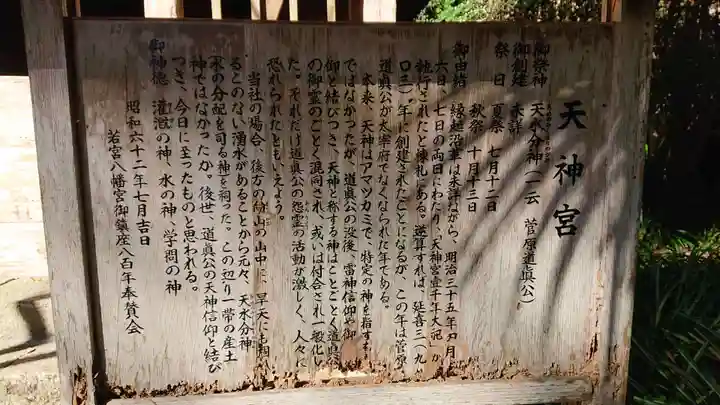 天神宮
御祭神 天水分神(一云 菅原道眞公)
御創建 未詳
祭日 夏祭 七月十二日
秋祭 十月十三日
御由緒 縁起沿革は未詳ながら、明治三十五年九月
六日、七日の両日にわたり、天神宮壹千年大祀が
執行されたと棟札にある。逆算すれば、延喜三(九
〇三)年に創建されたことになるが、この年は菅原
道眞公が太宰府でなくなられた年である。
本来、天神はアマツカミで、特定の神を指すも
ではなかったが、道眞公の没後、雷神信仰や御
御と結びつき、天神と称する神はことごとく道眞
の御霊のごとく混同され、或いは付合され一般化し
た。それだけ道眞公の怨霊の活動が激しく、人々に
恐れられたともいえよう。
当社の場合、後方の山の山中に、旱天にも
るこのない湧水があることから元々、天水分神
水の分配を司る神を祠った。この辺り一帯の産土
神ではなかったか。後世、道眞公の天神信仰と結び
つき、今日に至ったものと思われる。
御神徳 灌漑の神、水の神、学問の神
昭和六十二年七月吉日
若宮八幡宮御鎮座八百年奉賛会